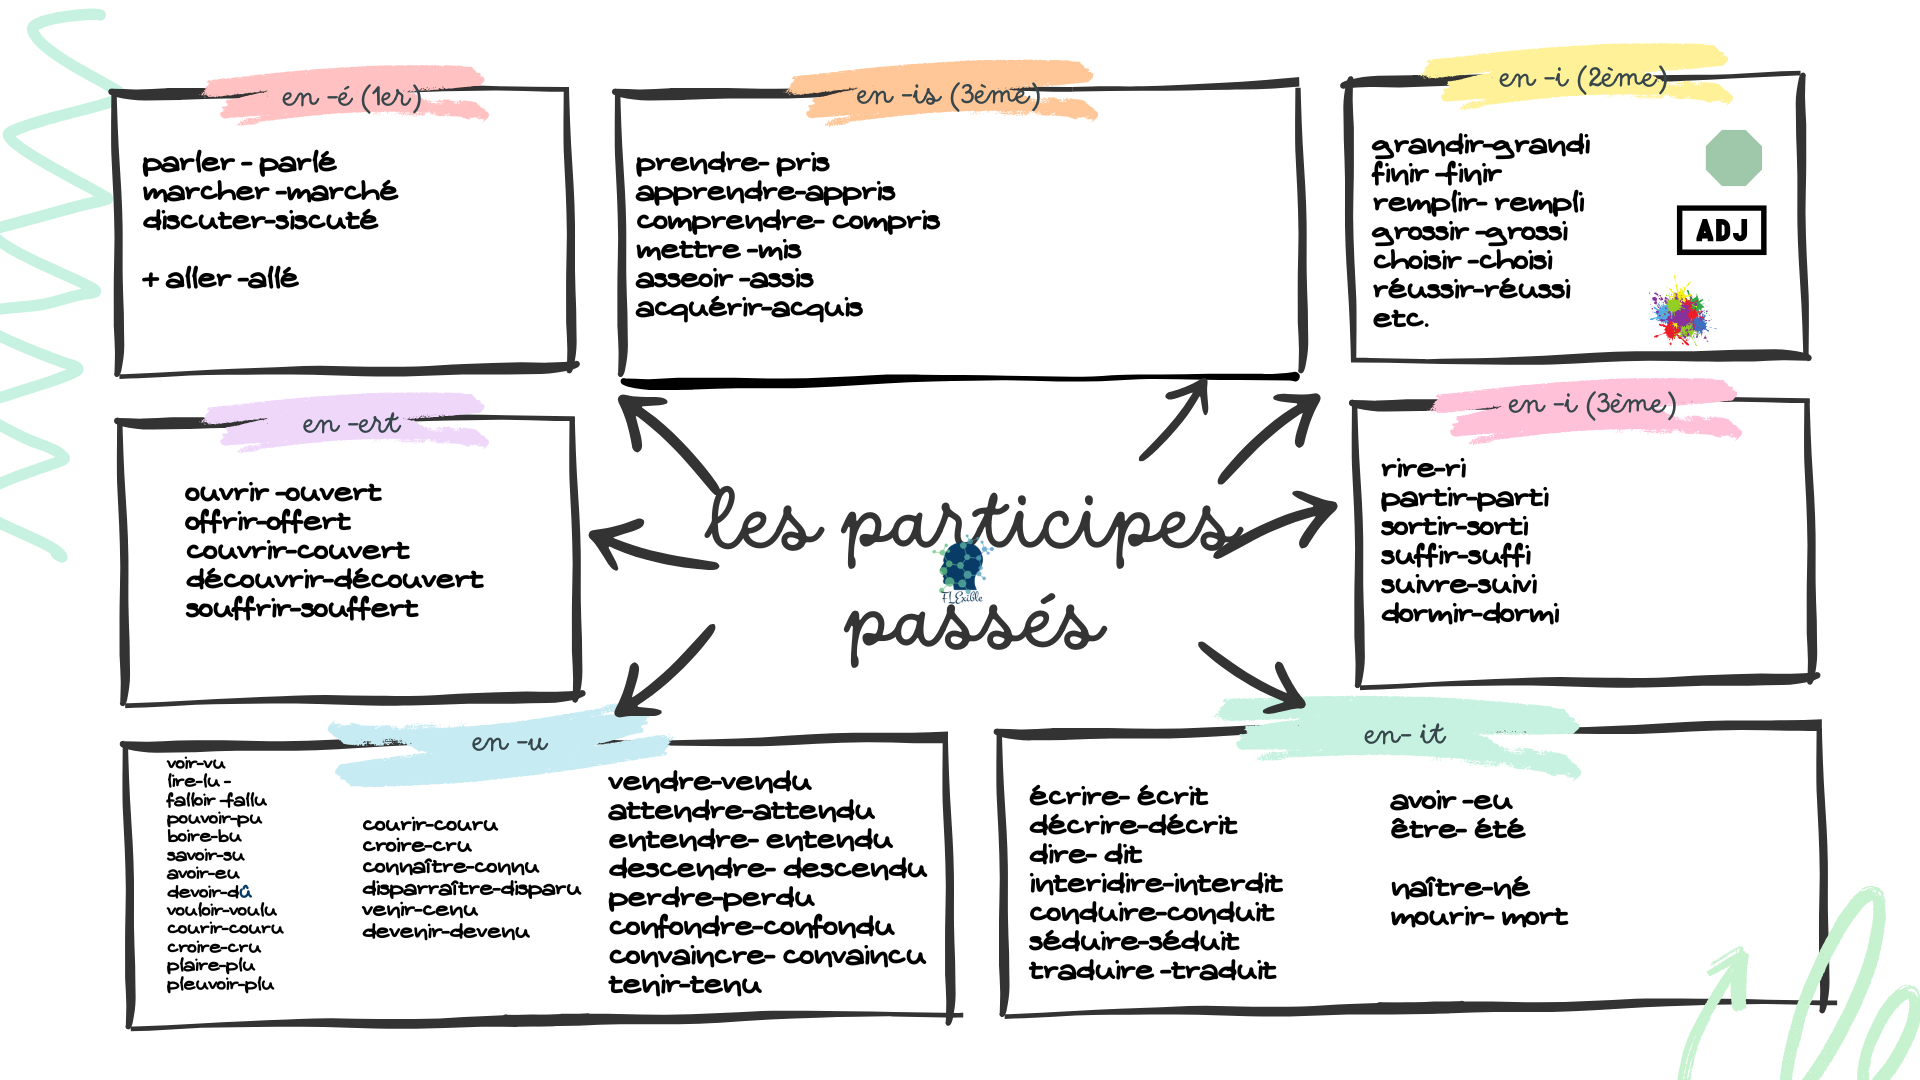 en -é (1er)
parler - parlé
marcher -marché
discuter-siscuté
+ aller -allé
en -is (3ème)
prendre- pris
apprendre-appris
comprendre- compris
mettre -mis
asseoir -assis
acquérir-acquis
en -i (2ème)
grandir-grandi
finir -finir
remplir- rempli
grossir -grossi
choisir -choisi
réussir-réussi
etc.
ADJ
en -ert
ouvrir -ouvert
offrir-offert
couvrir-couvert
découvrir-découvert
souffrir-souffert
les participes
passés
FLExible
en -i (3ème)
rire-ri
partir-parti
sortir-sorti
suffir-suffi
suivre-suivi
dormir-dormi
en -u
voir-vu
lire-lu -
falloir -fallu
pouvoir-pu
boire-bu
savoir-su
avoir-eu
devoir-dû
vouloir-voulu
courir-couru
croire-cru
plaire-plu
pleuvoir-plu
courir-couru
croire-cru
connaître-connu
disparraître-disparu
venir-cenu
devenir-devenu
vendre-vendu
attendre-attendu
entendre- entendu
descendre- descendu
perdre-perdu
confondre-confondu
convaincre- convaincu
tenir-tenu
en- it
écrire- écrit
décrire-décrit
dire- dit
interidire-interdit
conduire-conduit
séduire-séduit
traduire -traduit
avoir -eu
être- été
naître-né
mourir- mort